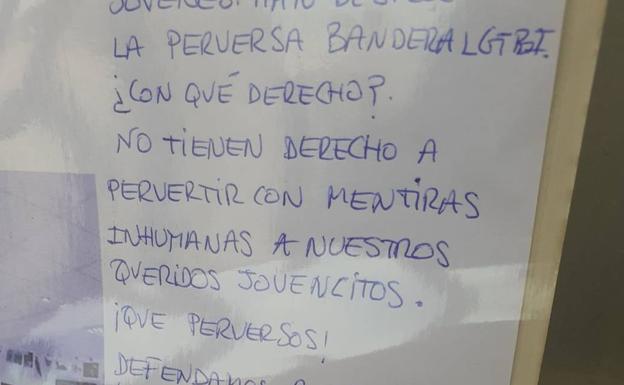 LA PERVERSA BANDERA LGTBI.
¿CON QUÉ DERECHO?.
NO TIENEN DERECHO A
PERVERTIR CON MENTIRAS
INHUMANAS A NUESTROS
QUERIDOS JOVENCITOS.
¡QUE PERVERSOS!
DEFENDAMOS A